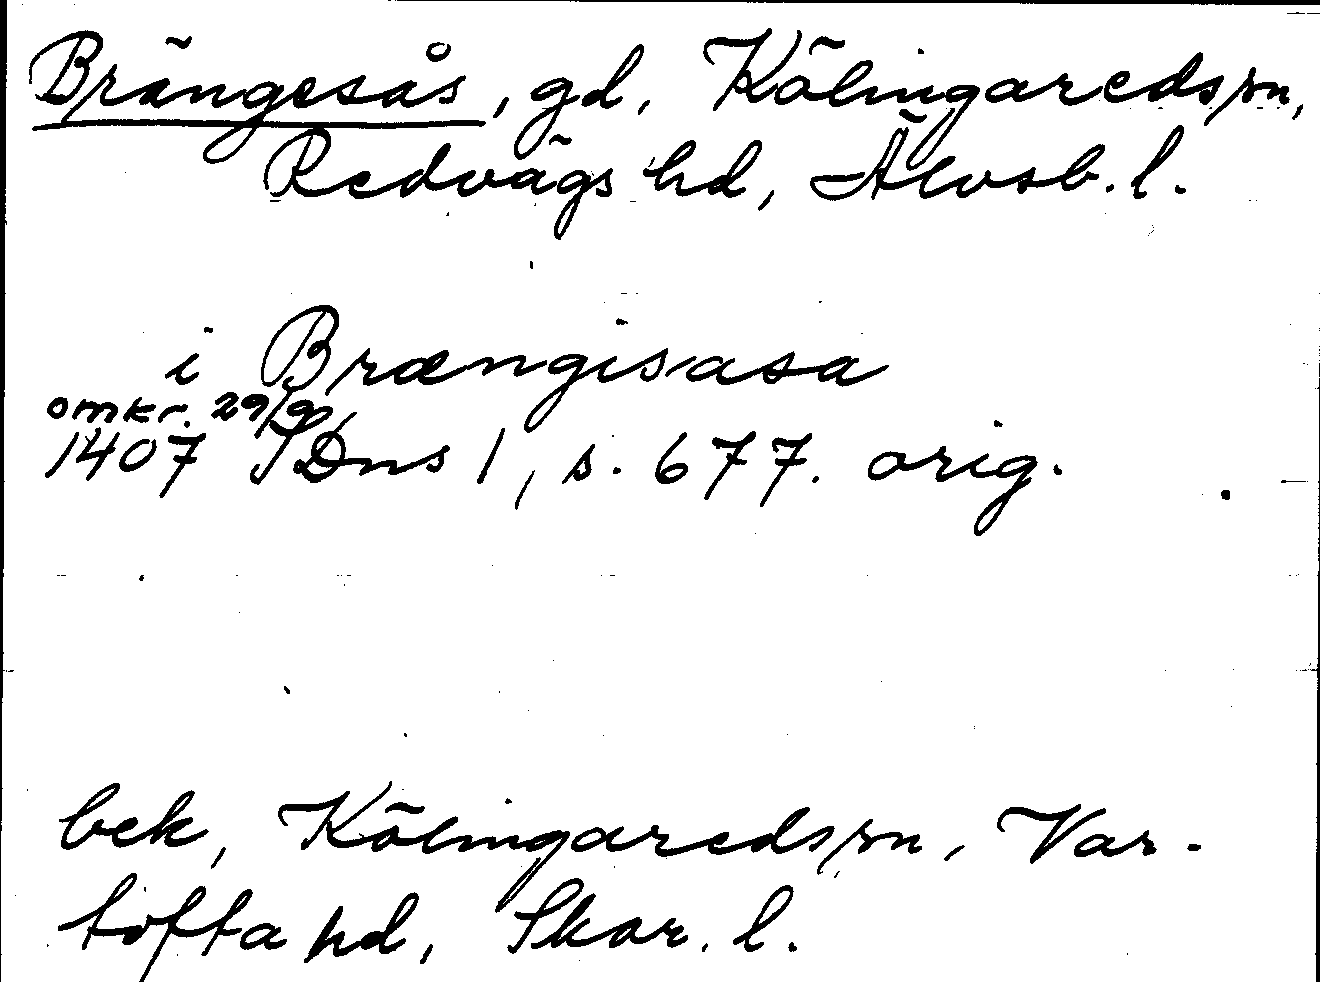 Brängesås, gd, Kölingaredssn,
Redvägs hd, Älvsb. l.
i Brængisasa
omkr. 29/9
1407 SDns 1, s. 677. orig.
bek, Kölingaredssn, Var-
tofta hd, Skar. l.